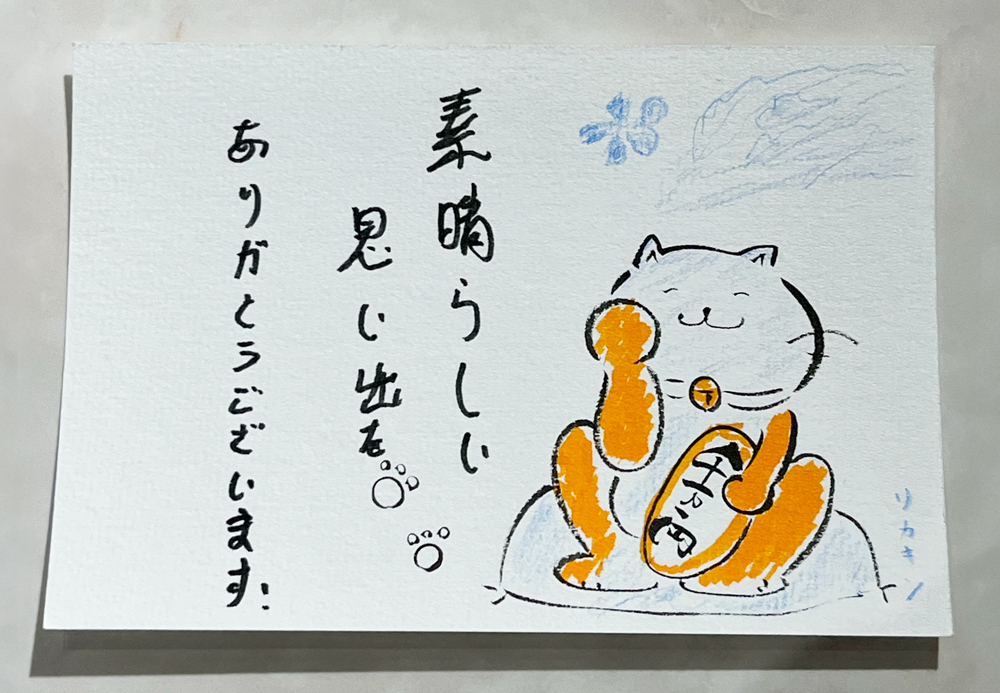 素晴らしい
思い出を
ありがとうございます!
千万円
リカキン